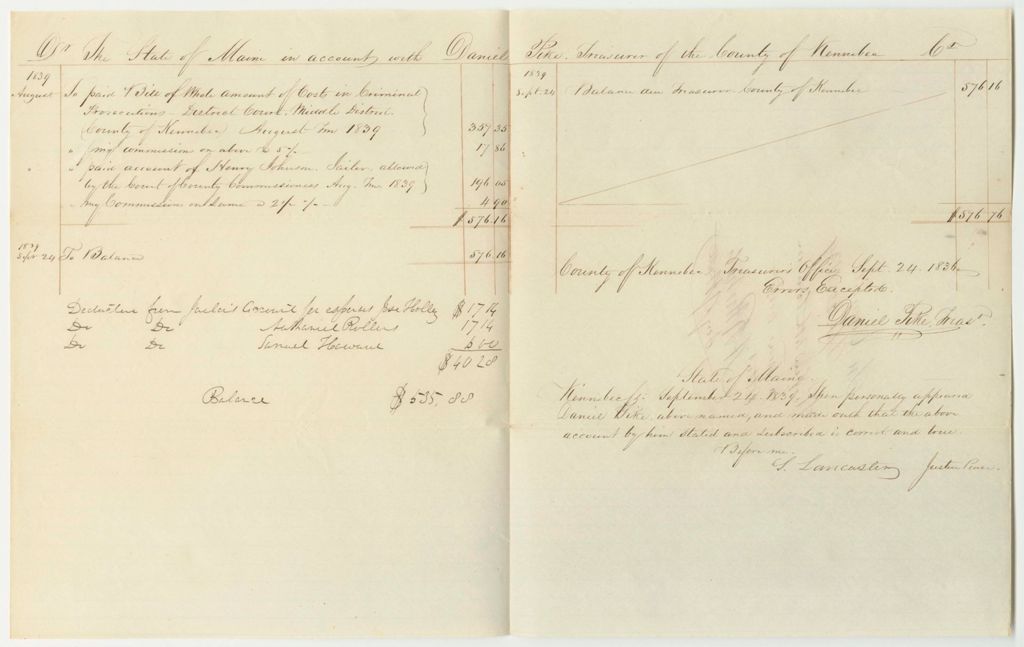 Dr The State of Maine in account with Daniel Pike, Treasurer of the County of Kennebec Cr
1839
August To paid Bill of Whole amount of Costs in Criminal
Prosecutions - District Court Middle District
County of Kennebec August Tm 1839 357 35
" my commission on above @ 5 %  17 86
" " paid account of Henry Johnson, Jailer, allowed
by the Court of County Commissioners Aug. Tm 1839 196 05
" my Commission on same @ 2½ % 4 90
$ 576.16
1839
Sept. 24 To Balance 576 16
Deductions from Jailer's Account for expenses Holley $17 14
Do Do Nathaniel Rollins 17 14
Do Do Samuel Howard 6 00
$40 28
Balance $535,88
1839
Sept. 24 Balance due Treasurer County of Kennebec 576 16
$576 76
County of Kennebec Treasurers Office Sept. 24. 1839
Errors Excepted.
Daniel Pike, Treasr.
State of Maine.
Kennebec ss. September 24. 1839. Then personally appeared
Daniel Pike above named, and made oath that the above
account by him stated and subscribed is correct and true.
Before me.
S. Lancaster Justice Peace.